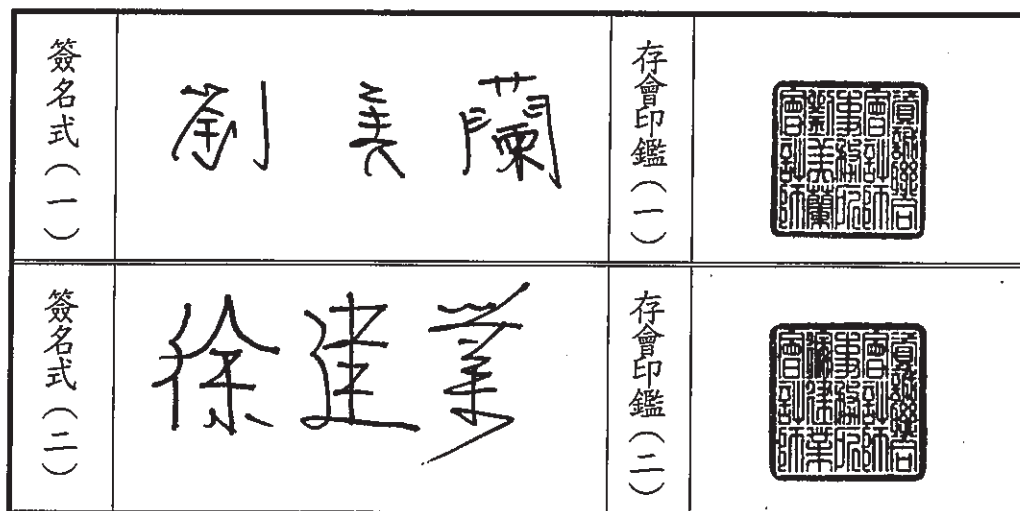 簽名式(一)
劉美蘭
存會印鑑(一)
資誠聯合
會計師
事務所
劉美蘭
會計師
簽名式(二)
徐建業
存會印鑑(二)
資誠聯合
會計師
事務所
徐建業
會計師